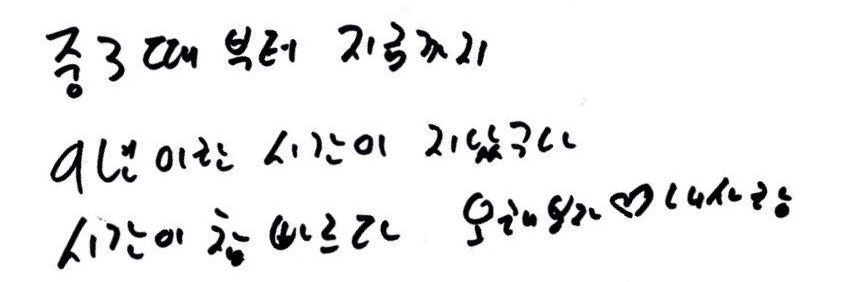 중3 때부터 지금까지
9년이라는 시간이 지났구나
시간이 참 빠르다 오래보자♡내사랑